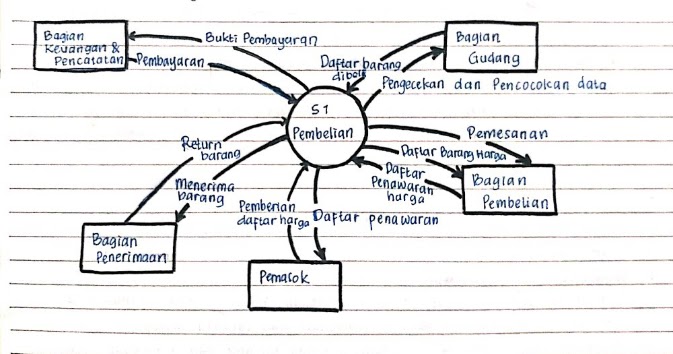 Bagian
Keuangan &
Pencatatan
Bukti Pembayaran
Pembayaran
Bagian
Gudang
Daftar barang
dibeli
Pengecekan dan Pencocokan data
SI
Pembelian
Pemesanan
Daftar Barang Harga
Daftar
Penawaran
harga
Bagian
Pembelian
Return
barang
Menerima
barang
Bagian
Penerimaan
Pemberian
daftar harga
Daftar penawaran
Pemasok